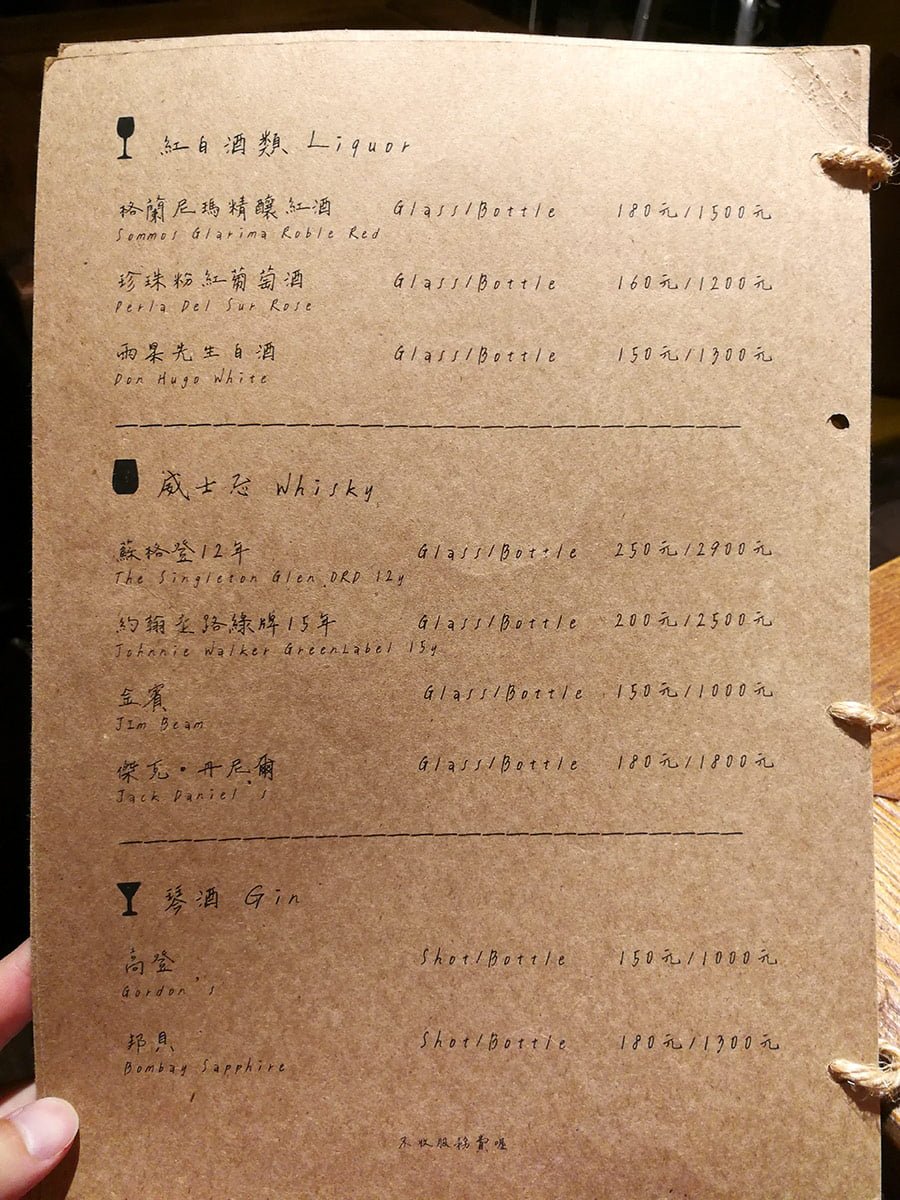 紅白酒類 Liquor
格蘭尼瑪精釀紅酒 Glass/Bottle 180元/1500元
Sommos Glarima Roble Red
珍珠粉紅葡萄酒 Glass/Bottle 160元/1200元
Perla Del Sur Rose
雨果先生白酒 Glass/Bottle 150元/1300元
Don Hugo White
威士忌 Whisky
蘇格登12年 Glass/Bottle 250元/2900元
The Singleton Glen ORD 12y
約翰走路綠牌15年 Glass/Bottle 200元/2500元
Johnnie Walker GreenLabel 15y
金賓 Glass/Bottle 150元/1000元
JIm Beam
傑克·丹尼爾 Glass/Bottle 180元/1800元
Jack Daniel's
琴酒 Gin
高登 Shot/Bottle 150元/1000元
Gordon's
邦貝 Shot/Bottle 180元/1300元
Bombay Sapphire
不收服務費喔